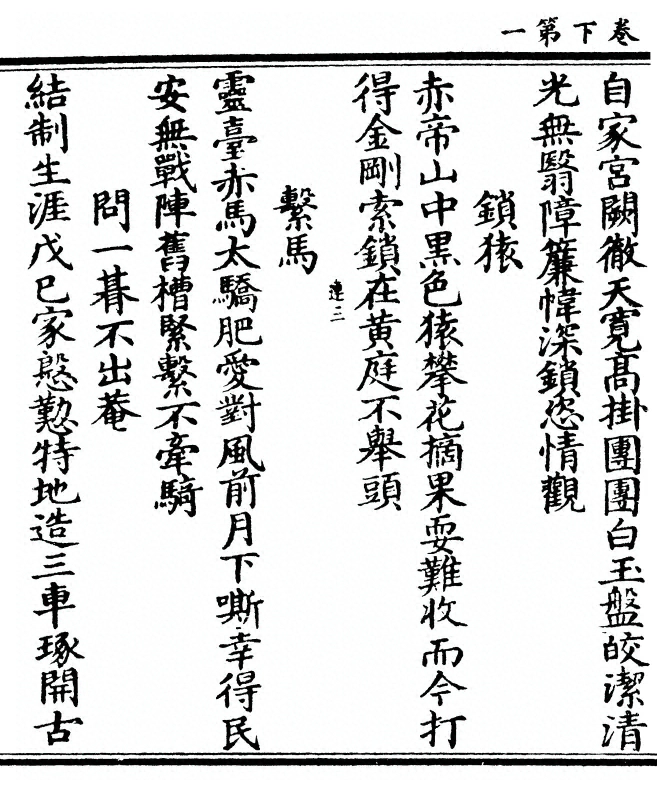 卷下第一
自家宮闕徹天寬高掛團團白玉盤皎潔清
光無翳障簾幃深鎖恣情觀
鎖猿
赤帝山中黒色猿攀花摘果耍難收而今打
得金剛索鎖在黄庭不舉頭
連三
繫馬
靈臺赤馬太驕肥愛對風前月下嘶幸得民
安無戰陣舊槽緊繫不牽騎
問一朞不出菴
結制生涯戊巳家慇懃特地造三車琢開古